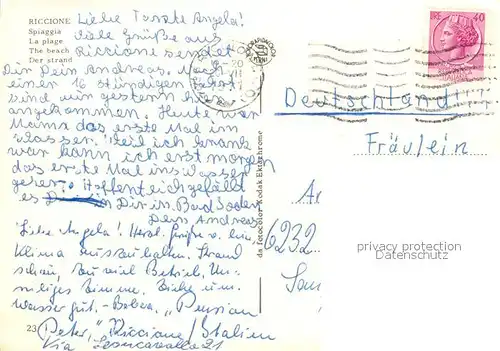 RICCIONE
Spiaggia
La plage
The beach
Der strand
Liebe Angela!
viele Grüße aus
Riccione sendet
Dir Dein Andreas. Nach
einer 16 stündigen Fahrt
sind wir gestern hier
angekommen. Heute war
Mama das erste Mal im
Wasser. Weil ich krank
war kann ich erst morgen
das erste Mal ins Wasser
gehen. Hoffentlich gefällt
es Dir in Bad Soden
Dein Andreas
Liebe Angela! Herzl. Grüße v. hier,
Klima auszuhalten. Strand
schön, zu viel Betrieb,
Zimmer.
Wasser gut. - "Pension
Peter," Riccione / Italien
Via 21
23
da fotocolor Kodak Ektachrome
40
Deutschland
Fräulein
6232
privacy protection
AKPOOL.DE